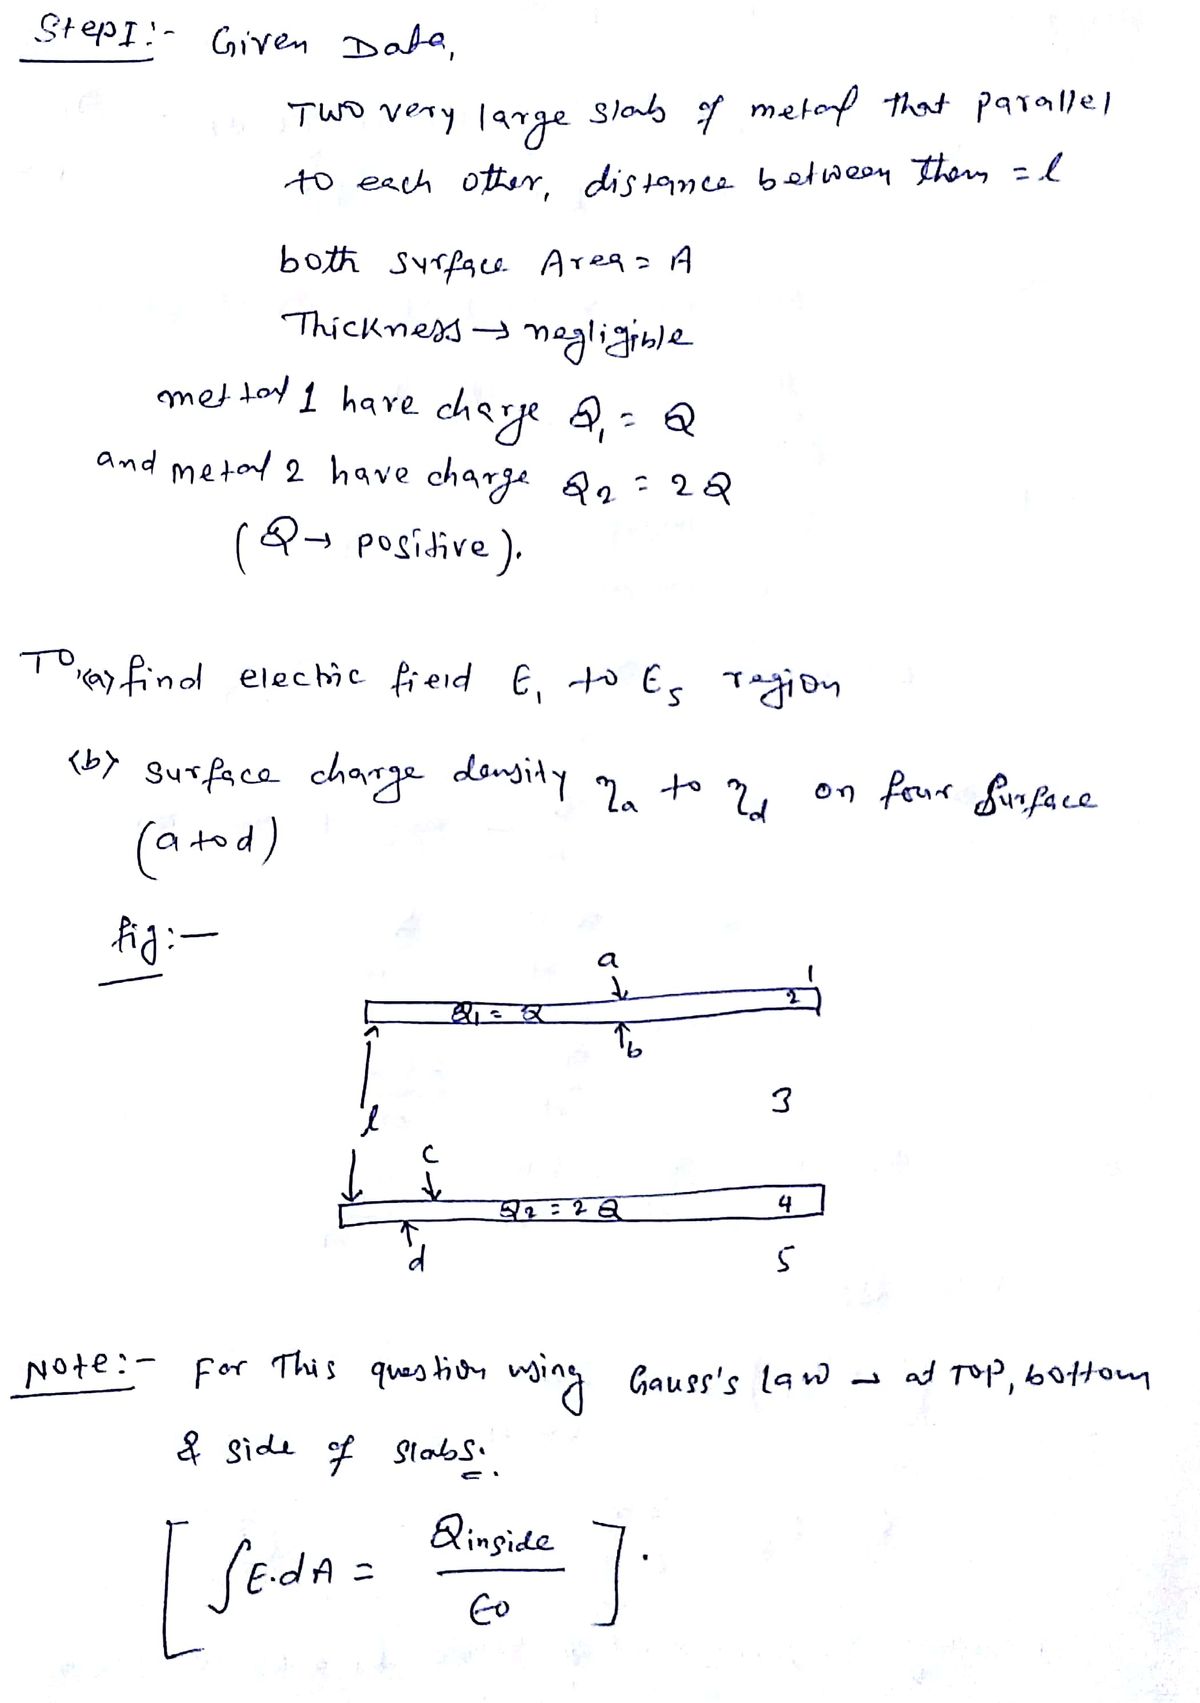 StepI:- Given Data,
Two very large slab of metal that parallel
to each other, distance between them = l
both surface Area = A
Thickness → negligible
mettal 1 have charge Q₁ = Q
and metal 2 have charge Q₂ = 2Q
(Q → positive).
To, (a) find electric field E₁ to E₅ region
(b) surface charge density η_a to η_d on four surface
(a to d)
fig:-
a
1
Q₁ = Q 2
b
3
l
c
Q₂ = 2Q 4
d 5
Note:- For This question using Gauss's law → at Top, bottom
& side of slabs.
[∫E.dA = Qinside / ε₀].